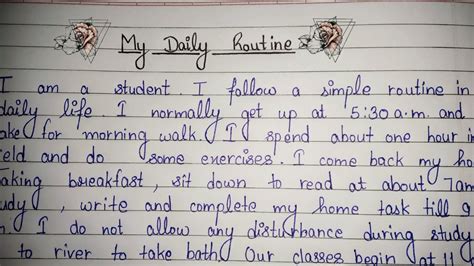 My Daily Routine
I am a student. I follow a simple routine in
daily life. I normally get up at 5:30 a.m. and
for morning walk. I spend about one hour in
and do some exercises. I come back my
breakfast, sit down to read at about 7am
, write and complete my home task till
I do not allow any disturbance during study
to river to take bath. Our classes begin at 11